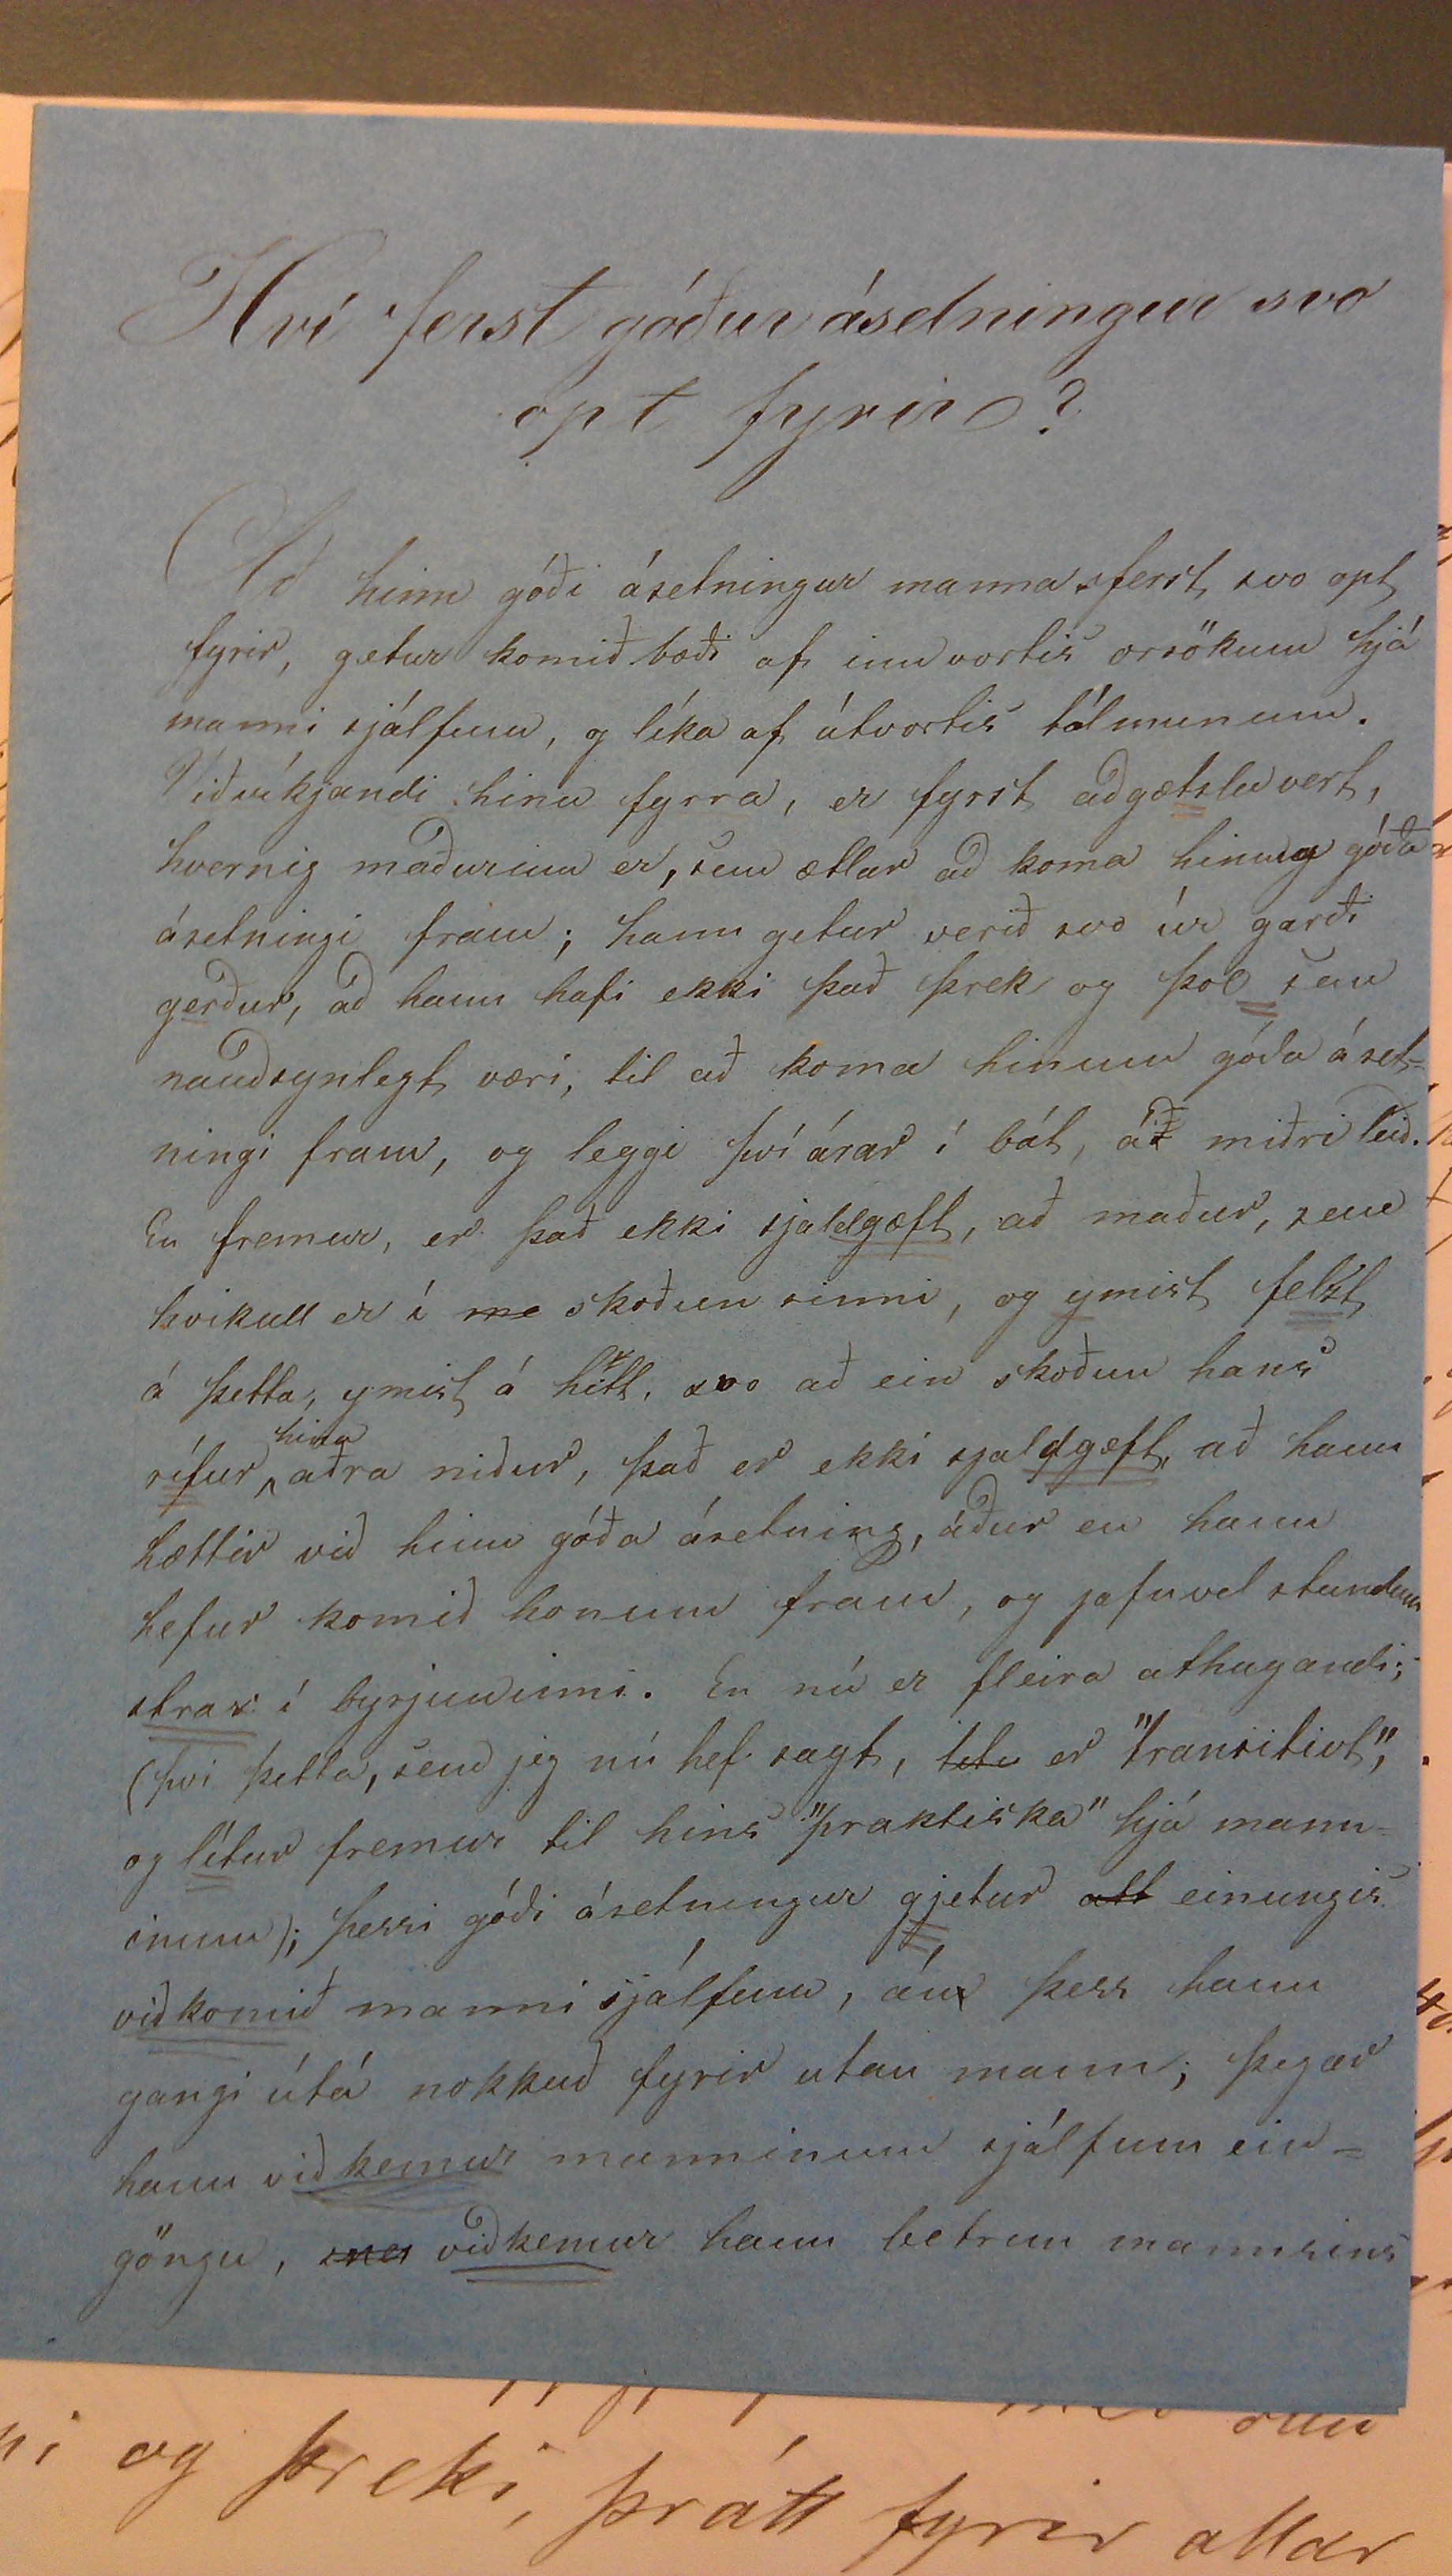 Hví ferst góður ásetningur svo
opt fyrir?
Að hinn góði ásetningur manna ferst svo opt
fyrir, getur komið bæði af innvortis orsökum hjá
manni sjálfum, og líka af útvortis tálmunum.
Viðvíkjandi hinu fyrra, er fyrst aðgætsluvert,
hvernig maðurinn er, sem ætlar að koma hinum góða
ásetningi fram; hann getur verið svo úr garði
gerður, að hann hafi ekki það þrek og þol sem
nauðsynlegt væri, til að koma hinum góða áset-
ningi fram, og leggi því árar í bát, á miðri leið.
En fremur, er það ekki sjaldgæft, að maður, sem
hvikull er í me skoðun sinni, og ymist felst
á þetta, ymist á hitt, svo að ein skoðun hans
rífur hina aðra niður, það er ekki sjaldgæft, að hann
hættir við hinn góða ásetning, áður en hann
hefur komið honum fram, og jafnvel stundum
strax í byrjuninni. En nú er fleira athugandi;
(því þetta, sem jeg nú hef sagt, er "transitivt",
og lítur fremur til hins "praktiska" hjá mann-
inum); þessi góði ásetningur gjetur att einungis
viðkomið manni sjálfum, án þess hann
gangi útá nokkuð fyrir utan mann; þegar
hann viðkemur manninum sjálfum ein-
göngu, viðkemur hann betrun mannsins
og þreki, þrátt fyrir allar